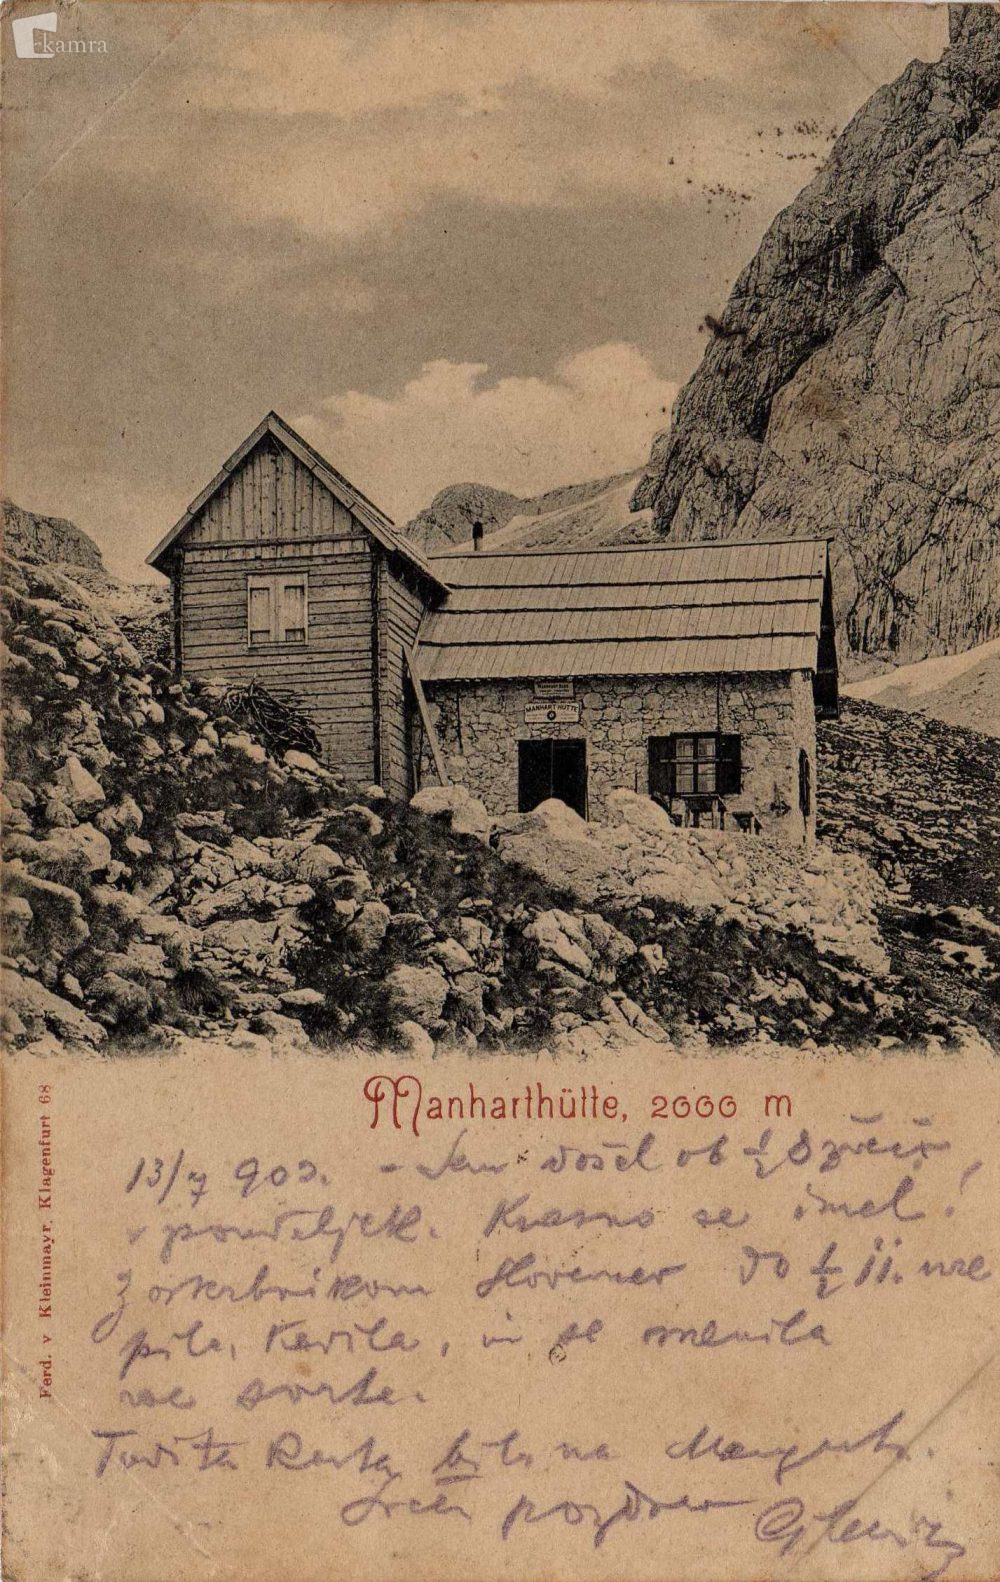 kamra
MANHART HÜTTE
Manharthütte, 2000 m
Ferd. v Kleinmayr, Klagenfurt 68
13/7 903. - Sem došel ob ½ 8 zvečer,
v pondeljek. Krasno se imel!
Z oskrbnikom Slovencem do ½ 11. ure
pila, kadila, in se menila
vse sorte.
Tudi ta karta bila na Mangartu.
Srčen pozdrav